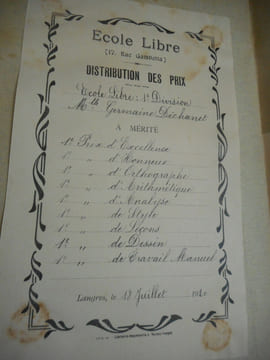 Ecole Libre
DISTRIBUTION DES PRIX
Ecole Libre : 1e Division
Mlle Germaine Déchanet
A MÉRITÉ
1er Prix d'Excellence
1er „ d'Honneur
1er „ d'Orthographe
1er „ d'Arithmétique
1er „ d'Analyse
1er „ de Style
1er „ de Leçons
1er „ de Dessin
1er „ de Travail Manuel
Langres, le 18 Juillet